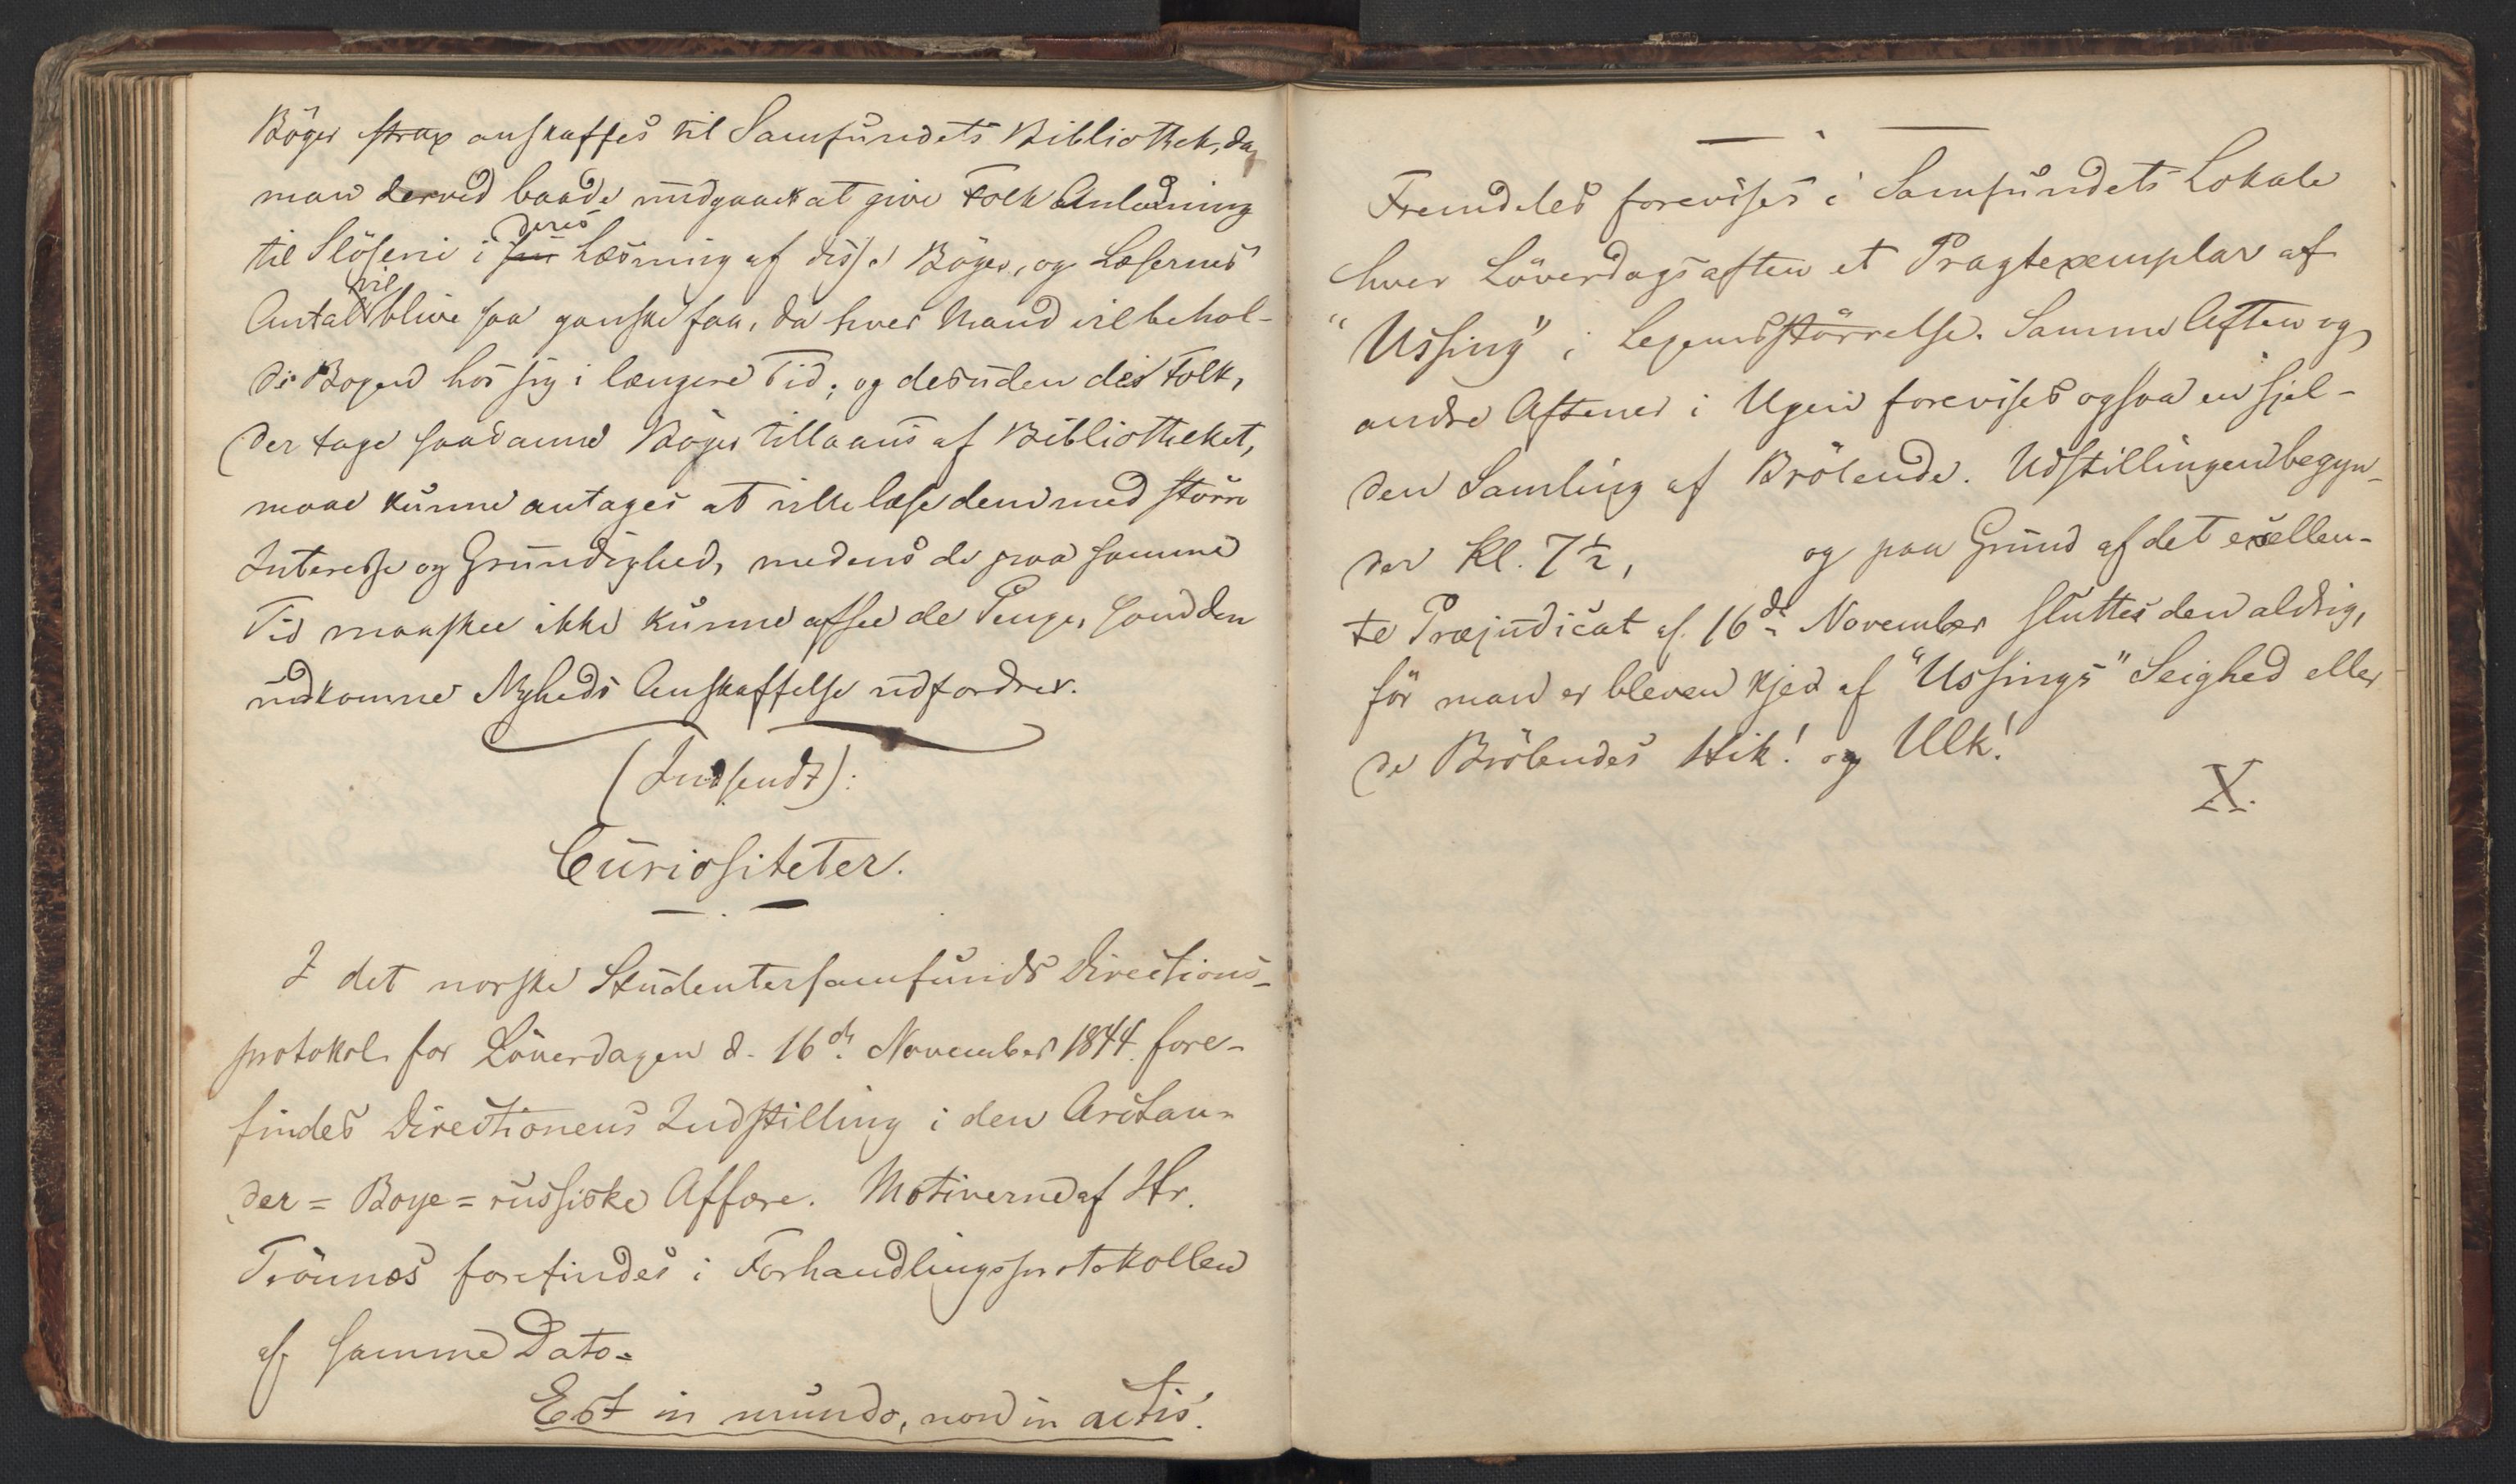 Böger strax anskaffes til Samfundets Bibliothek, da
man derved baade undgaaer at give Folk Anledning
til Slöseri i deres Læsning af disse Böger, og Læsernes
Antal vil blive saa ganske faa, da hver Mand vil behol-
de Bogen hos sig i længere Tid; og desuden de Folk,
der tage saadanne Böger tillaans af Bibliotheket,
maae kunne antages at ville læse dem med större
Interesse og Grundighed, medens de paa samme
Tid maaskee ikke kunne afsee de Penge, som den
udkomne Nyheds Anskaffelse udfordrer.
(Indsendt):
Curiositeter.
I det norske Studentersamfunds Directions-
protokol for Löverdagen d. 16de November 1844 fore-
findes Directionens Indstilling i den Arctan-
der = Boye = russiske Affære. Motiverne af Hr.
Trönnes forefindes i Forhandlingsprotokollen
af samme Dato.
Est in mundo, non in actis.
Fremdeles forevises i Samfundets Lokale
hver Löverdagsaften et Pragtexemplar af
"Ussing" i Legemsstörrelse. Samme Aften og
andre Aftener i Ugen forevises ogsaa en sjel-
den Samling af Brölende. Udstillingen begyn-
der Kl. 7½, og paa Grund af det exellen-
te Præjudicat af 16de November sluttes den aldrig,
för man er bleven kjed af "Ussings" Seighed eller
de Brölendes Hik! og Ulk!
X.